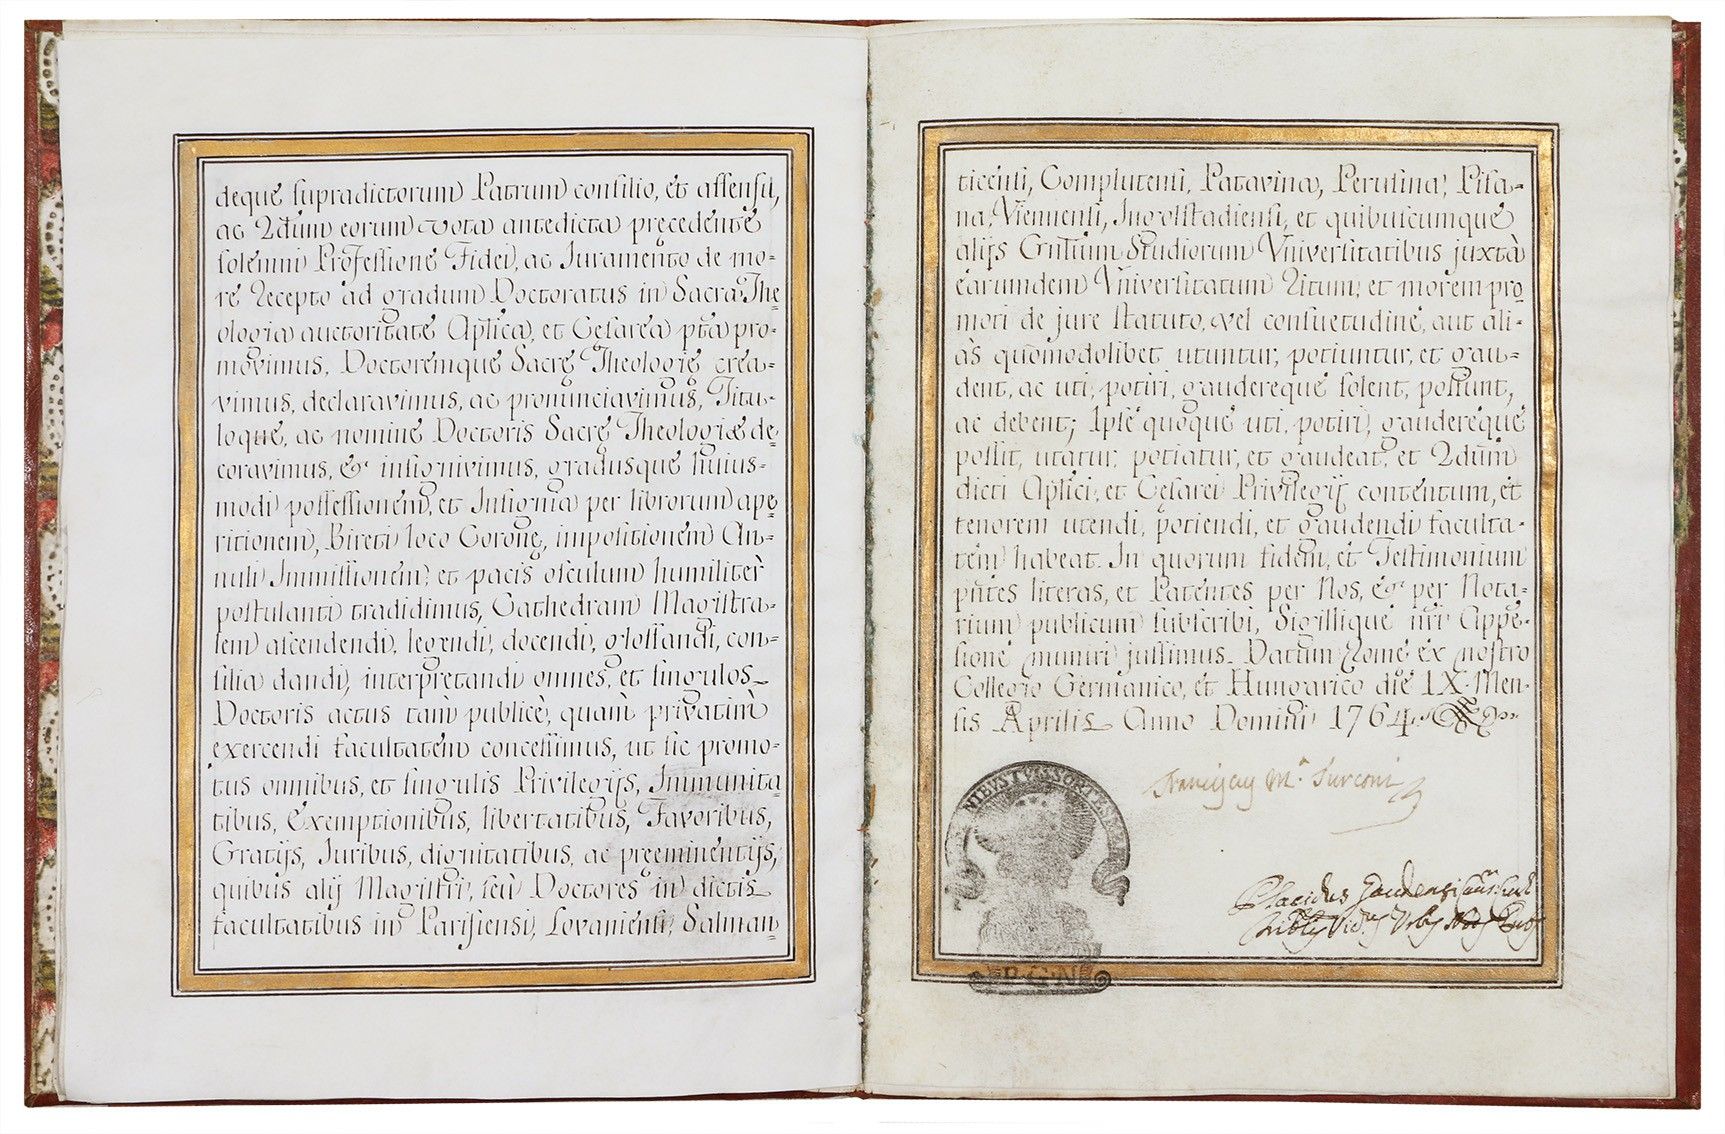 deque supradictorum Patrum consilio, et assensu,
ac Zdum eorum vota antedicta pręcedente
solemni Professione Fidei, ac Juramento de mo=
re recepto ad gradum Doctoratus in Sacra The
ologia auctoritate Aplica, et Cesarea pta pro=
movimus, Doctoremque Sacrę Theologię crea=
vimus, declaravimus, ac pronunciavimus, Titu=
loque, ac nomine Doctoris Sacrę Theologiæ de=
coravimus, & insignivimus, gradusque huius=
modi possessionem, et Insignia per librorum ape
ritionem, Bireti loco Coronę, impositionem An=
nuli Immissionem, et pacis osculum humiliter
postulanti tradidimus, Cathedram Magistra=
lem ascendendi, legendi, docendi, glossandi, con=
silia dandi, interpretandi omnes, et singulos
Doctoris actus tam publicè, quam privatim
exercendi facultatem concessimus, ut sic promo=
tus omnibus, et singulis Privilegijs, Immunita
tibus, Exemptionibus, libertatibus, Favoribus,
Gratijs, Juribus, dignitatibus, ac pręeminentijs,
quibus alij Magistri, seu Doctores in dictis
facultatibus in Parisiensi, Lovaniensi, Salman
ticensi, Complutensi, Patavina, Perusina, Pisa=
na, Viennensi, Ingolstadiensi, et quibuscumque
alijs Gnlium Studiorum Vniversitatibus juxtà
earumdem Vniversitatum Ritum, et morem pro
moti de jure statuto, vel consuetudine, aut ali=
às quomodolibet utuntur, potiuntur, et gau=
dent, ac uti, potiri, gaudereque solent, possunt,
ac debent; Ipse quoque uti, potiri, gaudereque
possit, utatur, potiatur, et gaudeat, et Zdum
dicti Aplici, et Cesarei Privilegij contentum, et
tenorem utendi, potiendi, et gaudendi faculta=
tem habeat. In quorum fidem, et Testimonium
pntes literas, et Patentes per Nos, & per Nota=
rium publicum subscribi, Sigillique nri Appe=
sione muniri jussimus. Datum Romę ex nostro
Collegio Germanico, et Hungarico die IX. Men=
sis Aprilis Anno Domini 1764.
M.ª Turconi
Placidus Gaudensi
P.G.N